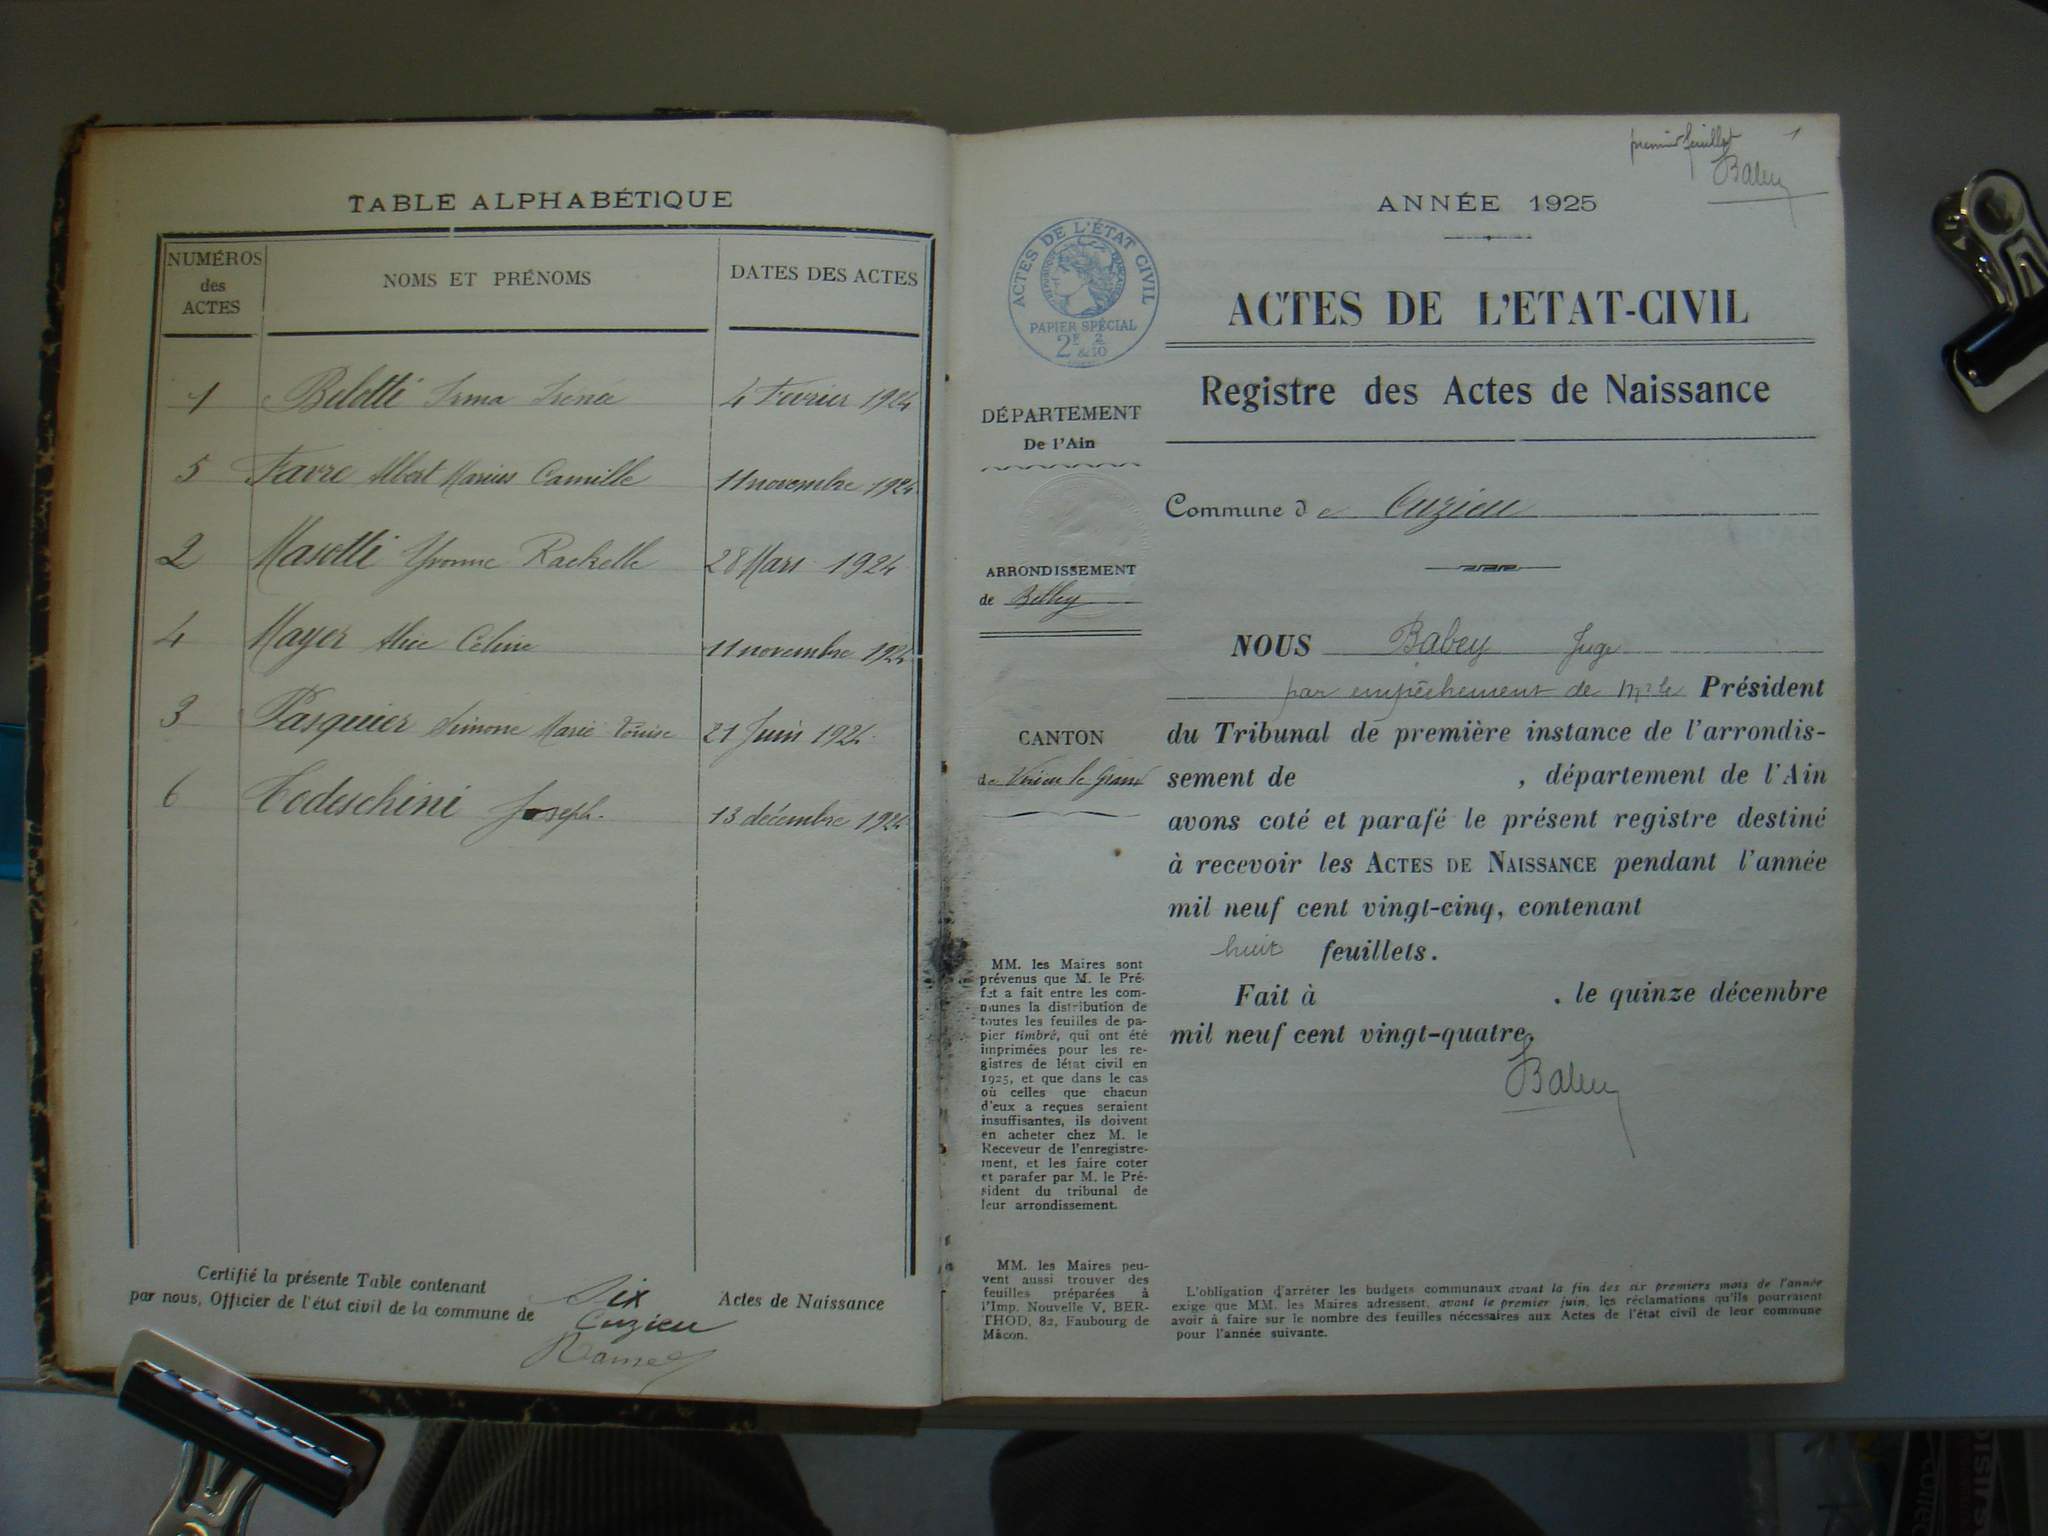 TABLE ALPHABÉTIQUE
NUMÉROS
des
ACTES
NOMS ET PRÉNOMS
DATES DES ACTES
1 Belotti Irma Irénée 4 Fevrier 1924
5 Favre Albert Marius Camille 11 novembre 1924
2 Masotti Yvonne Rachelle 28 Mars 1924
4 Mayer Alice Céline 11 novembre 1924
3 Pasquier Simone Marie Louise 21 Juin 1924
6 Todeschini Joseph. 13 décembre 1924
Certifié la présente Table contenant Six Actes de Naissance
par nous, Officier de l'état civil de la commune de Cuzieu
premier feuillet 1
Babey
ANNÉE 1925
ACTES DE L'ÉTAT CIVIL
RÉPUBLIQUE FRANÇAISE
PAPIER SPÉCIAL
2F 2
&10
ACTES DE L'ETAT-CIVIL
Registre des Actes de Naissance
DÉPARTEMENT
De l'Ain
Commune de Cuzieu
ARRONDISSEMENT
de Belley
CANTON
de Virieu le Grand
NOUS Babey Juge
par empêchement de Mr le Président
du Tribunal de première instance de l'arrondis-
sement de , département de l'Ain
avons coté et parafé le présent registre destiné
à recevoir les ACTES DE NAISSANCE pendant l'année
mil neuf cent vingt-cinq, contenant
huit feuillets.
Fait à , le quinze décembre
mil neuf cent vingt-quatre.
Babey
MM. les Maires sont
prévenus que M. le Pré-
fet a fait entre les com-
munes la distribution de
toutes les feuilles de pa-
pier timbré, qui ont été
imprimées pour les re-
gistres de létat civil en
1925, et que dans le cas
où celles que chacun
d'eux a reçues seraient
insuffisantes, ils doivent
en acheter chez M. le
Receveur de l'enregistre-
ment, et les faire coter
et parafer par M. le Pré-
sident du tribunal de
leur arrondissement.
MM. les Maires peu-
vent aussi trouver des
feuilles préparées à
l'Imp. Nouvelle V. BER-
THOD, 82, Faubourg de
Mâcon.
L'obligation d'arrêter les budgets communaux avant la fin des six premiers mois de l'année
exige que MM. les Maires adressent, avant le premier juin, les réclamations qu'ils pourraient
avoir à faire sur le nombre des feuilles nécessaires aux Actes de l'état civil de leur commune
pour l'année suivante.